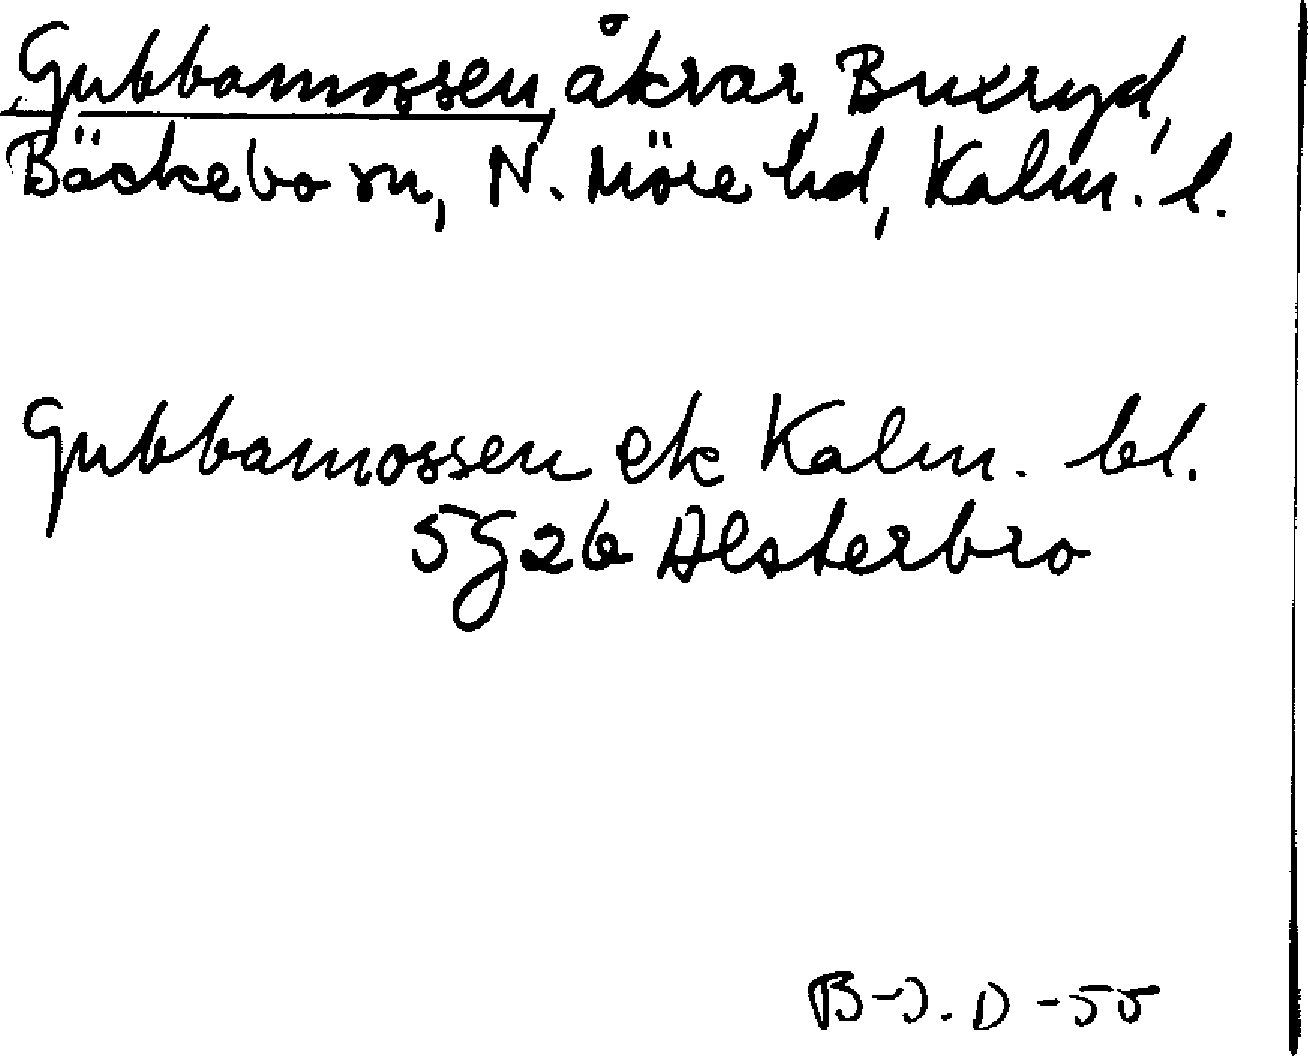 Gubbamossen, åkrar, Buxeryd,
Bäckebo sn, N. Möre hd, Kalm. l.
Gubbamossen ek Kalm. bl.
5G2b Alsterbro
B-J. D -55